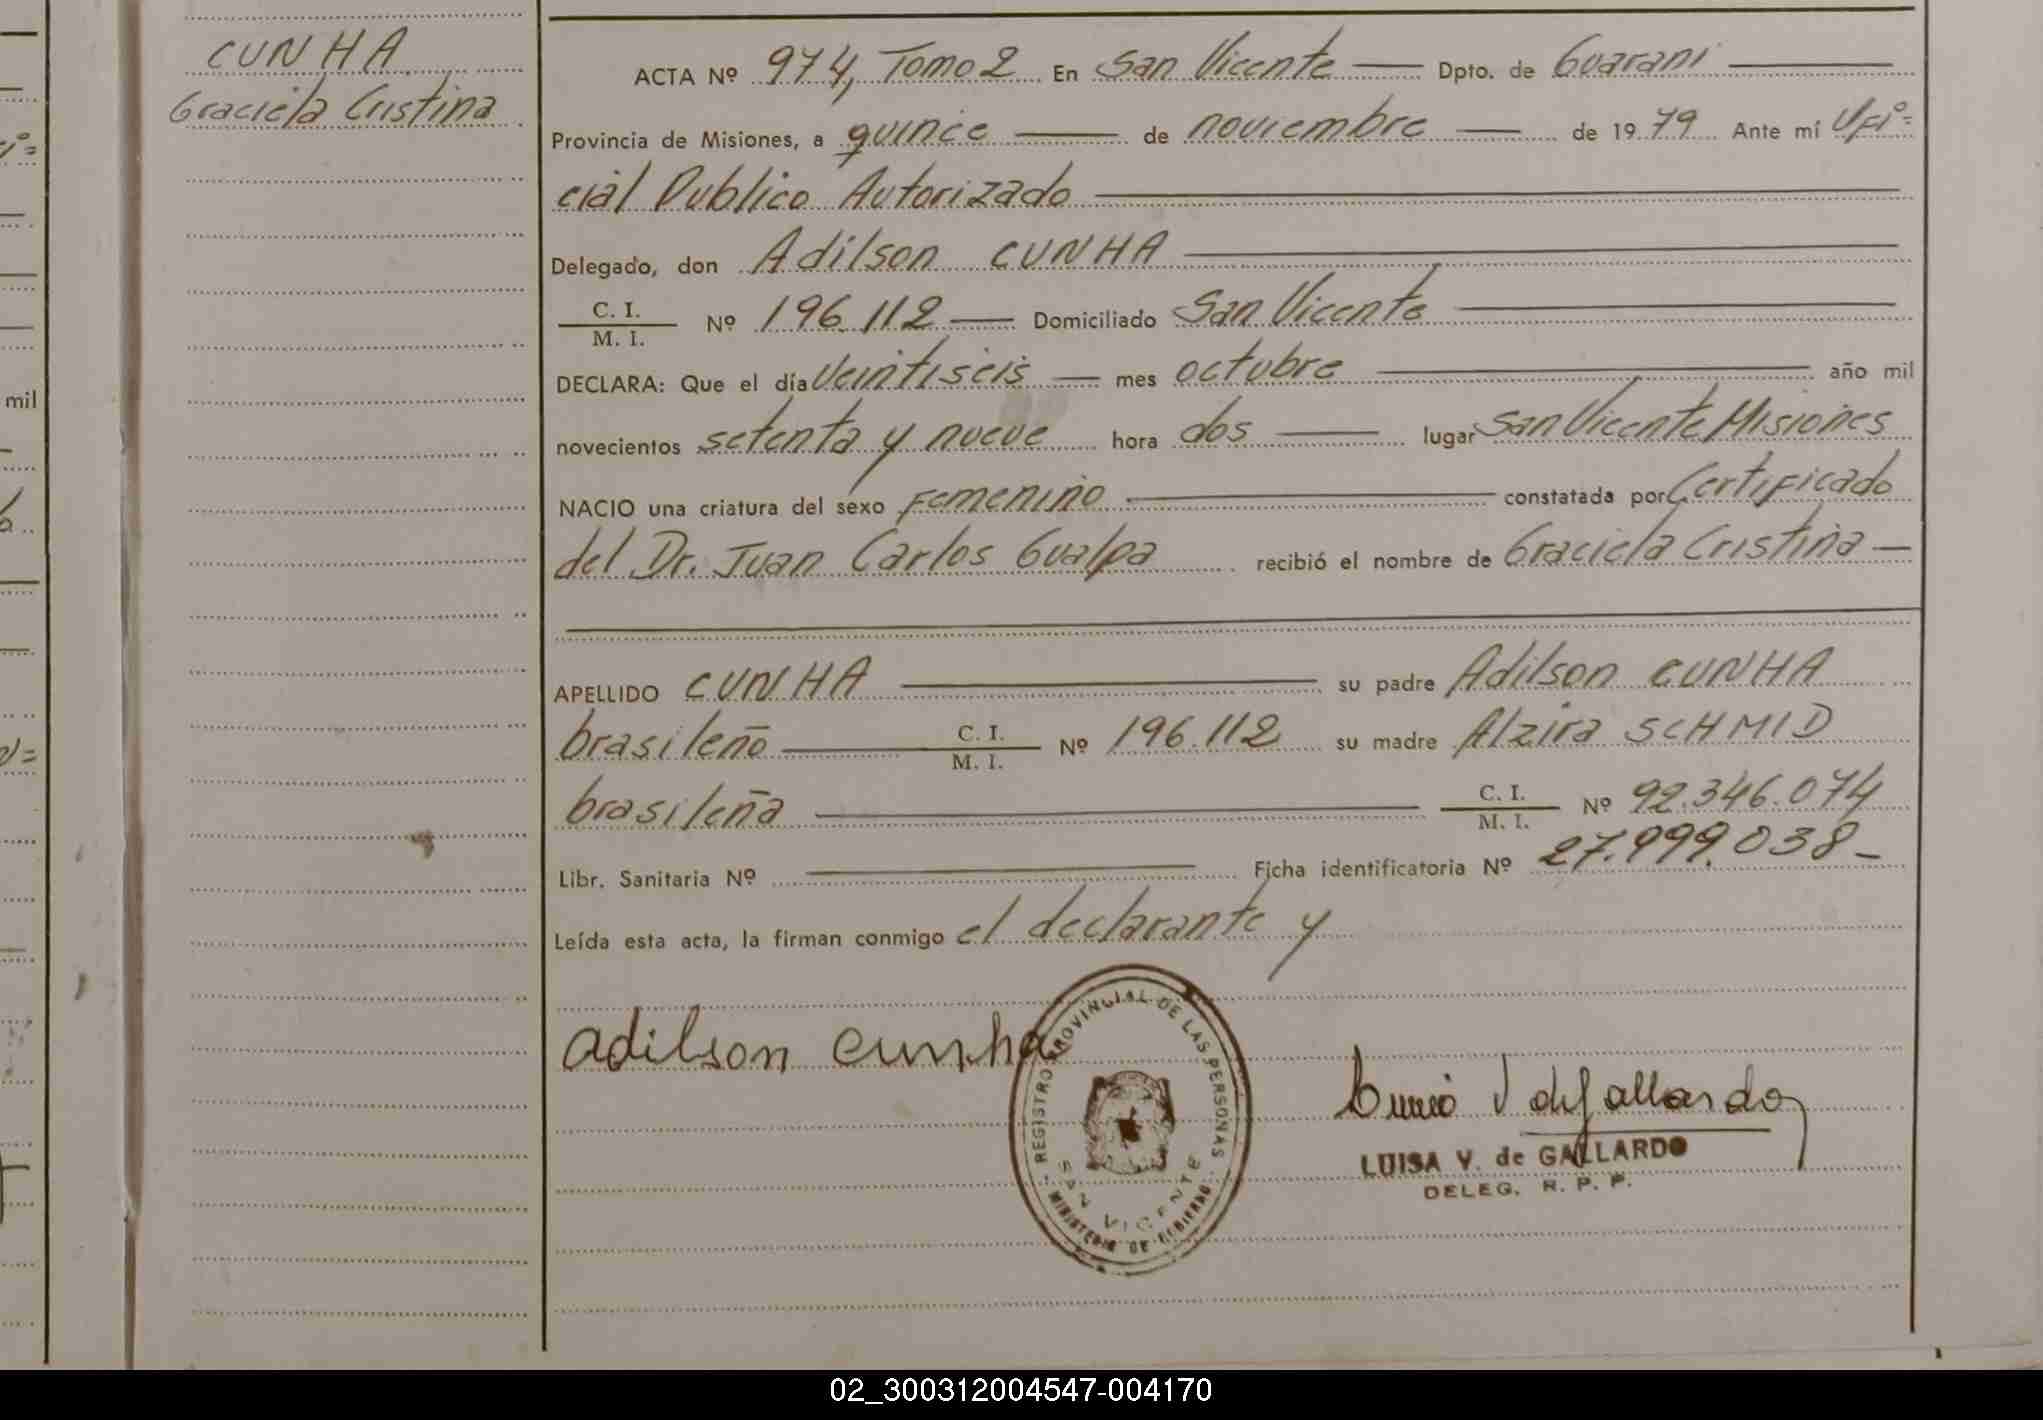 CUNHA
Graciela Cristina
ACTA Nº 974, Tomo 2 En San Vicente Dpto. de Guarani
Provincia de Misiones, a quince de noviembre de 1979 Ante mí Ofi=
cial Publico Autorizado
Delegado, don Adilson CUNHA
C. I.
M. I. Nº 196.112 Domiciliado San Vicente
DECLARA: Que el día Veintiseis mes octubre año mil
novecientos setenta y nueve hora dos lugar San Vicente Misiones
NACIO una criatura del sexo Femenino constatada por Certificado
del Dr. Juan Carlos Gualpa recibió el nombre de Graciela Cristina
APELLIDO CUNHA su padre Adilson CUNHA
brasileño C. I.
M. I. Nº 196.112 su madre Alzira SCHMID
brasileña C. I.
M. I. Nº 92.346.074
Libr. Sanitaria Nº Ficha identificatoria Nº 27.999.038-
Leída esta acta, la firman conmigo el declarante y
adilson cunha
REGISTRO PROVINCIAL DE LAS PERSONAS
SAN VICENTE
MINISTERIO DE GOBIERNO
LUISA V. de GALLARDO
DELEG. R. P. P.
mil
02_300312004547-004170